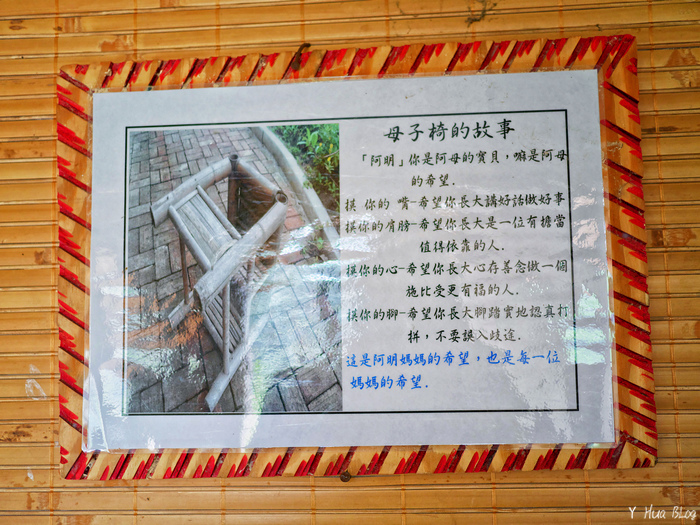 母子椅的故事
「阿明」你是阿母的寶貝，嘛是阿母
的希望.
摸 你的 嘴-希望你長大講好話做好事
摸你的肩膀-希望你長大是一位有擔當
值得依靠的人.
摸你的心-希望你長大心存善念做一個
施比受更有福的人.
摸你的腳-希望你長大腳踏實地認真打
拼，不要誤入歧途.
這是阿明媽媽的希望，也是每一位
媽媽的希望.
Y Hua BLog